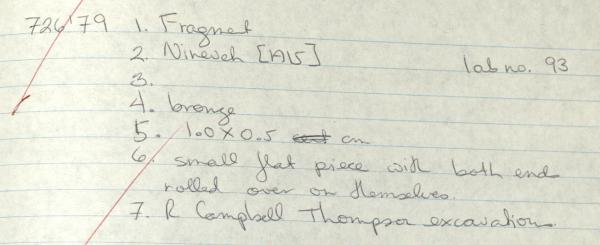 726'79 1. Fragmet
2. Nineveh [A15]
lab no. 93
3.
4. bronze
5. 1.0 x 0.5 cm
6. small flat piece with both end
rolled over on themselves.
7. R Campbell Thompson excavation.